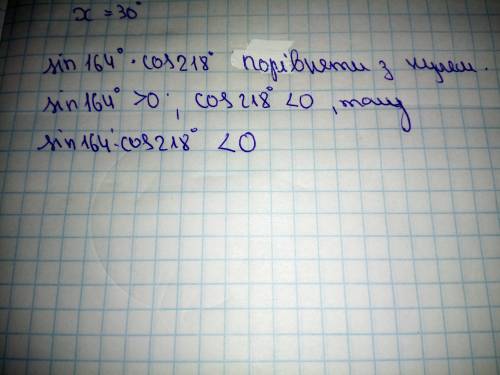 x = 30°
sin 164° · cos 218° порівняти з нулем.
sin 164° > 0 ; cos 218° < 0 , тому
sin 164° · cos 218° < 0